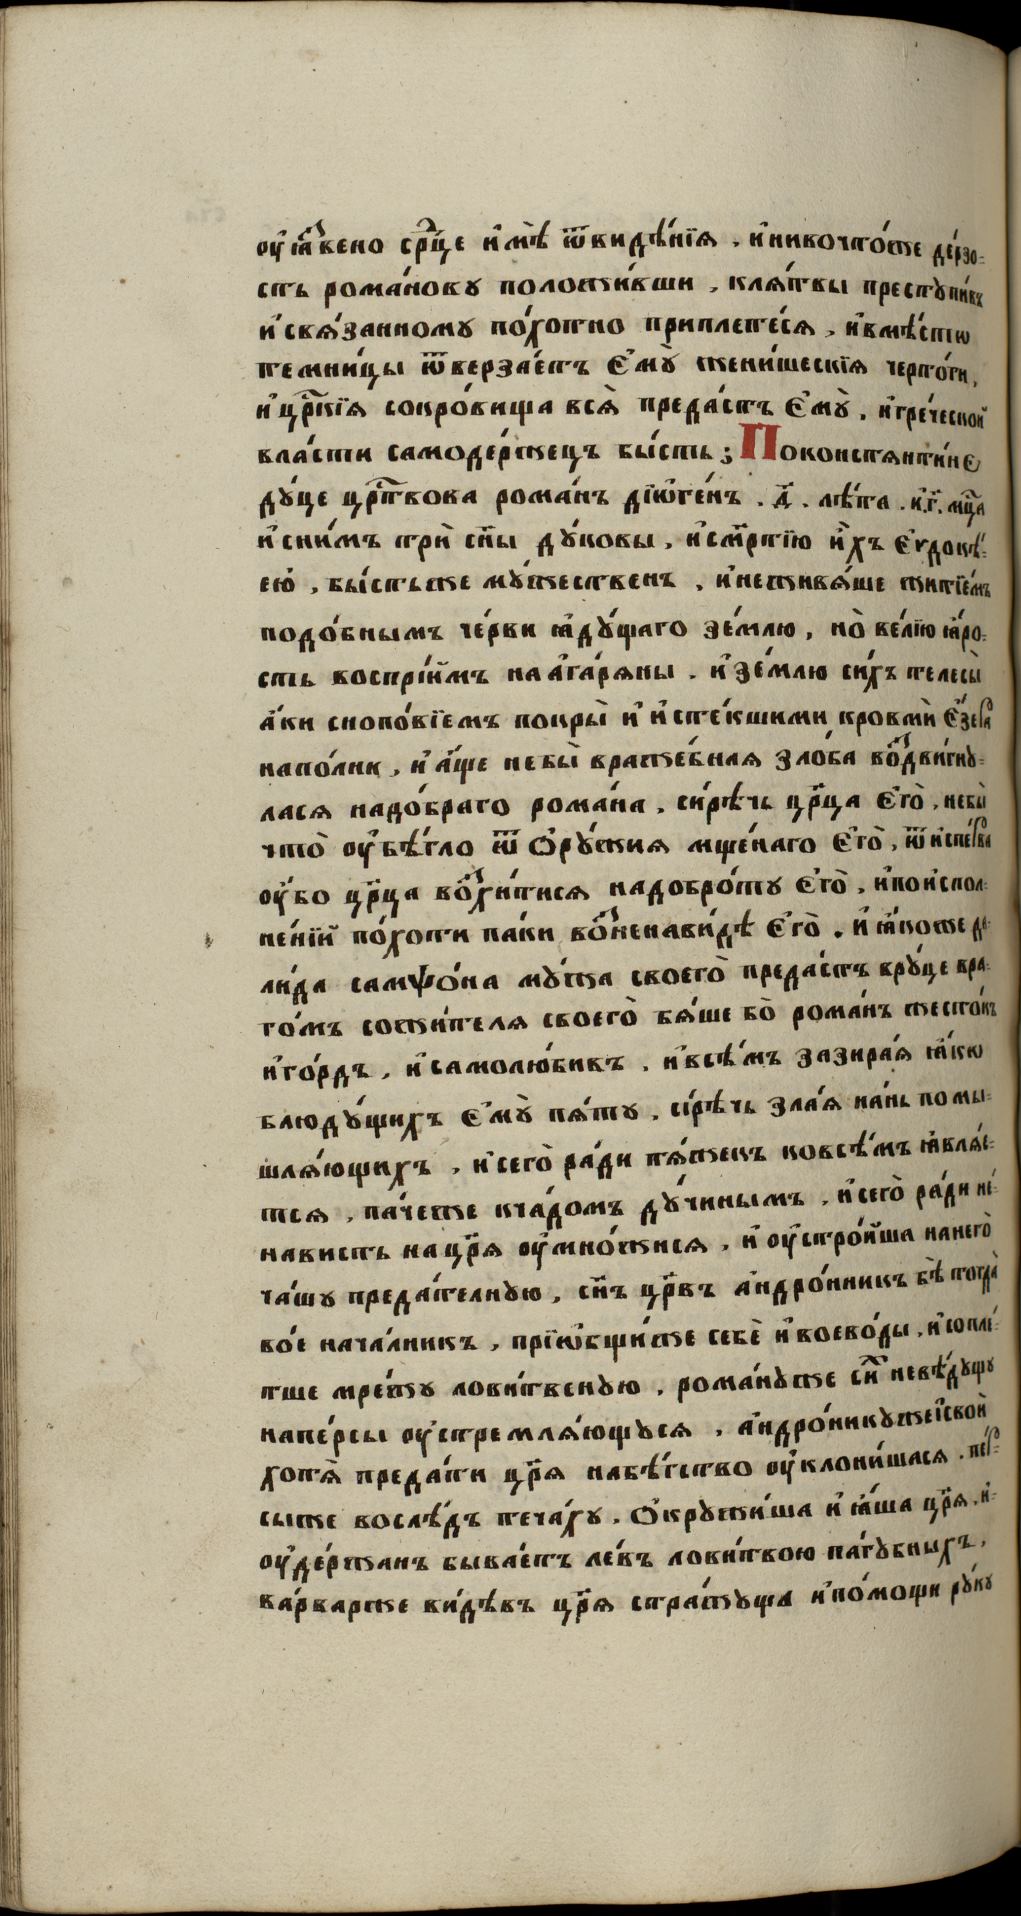 оу҆ꙗ҆́звено ср҃це и҆мѣ̀ ѿвидѣ́нїя, и҆ничто́же дѣ́рзо-
сть рома́нову положи́вши, кля́твы преступи́въ
и҆свя́занному по́хотно приплете́ся, и҆вмѣ́стѡ
темни́цы ѿверза́етъ є҆мꙋ̀ жени́ческїя черто́ги,
и҆ ц҃рскїя сокро́вища вся̀ преда́стъ є҆мꙋ̀, и҆гре́ческой
вла́сти самоде́ржецъ бы́сть; Поконстянти́не
дꙋ́це црⷭ҇твова рома́нъ дїѡге́нъ. д҃. лѣ́та. и҃.г҃. мцⷭ҇а
и҆сни́мъ трѝ сн҃ы дꙋ́ковы, и҆сме́ртїю и҆́хъ є҆ѵдокѣ́-
ею̀, бы́стьже мꙋ́жественъ, и҆неживя́ше житїе́мъ
подо́бнымъ че́рви ꙗ҆дꙋ́щаго зе́млю, но̀ ве́лїю ꙗ҆́ро-
сть воспрїи́мъ на а҆га́ряны. и҆зе́млю си́хъ телесы̀
а҆́ки снопо́вїемъ покры̀ и҆ и҆сте́кшими кровмѝ є҆зера
напо́лни, и҆ а҆́ще не бы̀ враже́бная зло́ба воз̾дви́гнꙋ-
лася надо́браго рома́на, си́рѣчь цр҃ца є҆гѡ̀, небы̀
что̀ оу҆бѣ́гло ѿ ѻ҆рꙋ́жия мще́наго є҆гѡ̀, ѿ и҆спе́рва
оу҆́бо цр҃ца вос̾хи́тися надобро́тꙋ є҆гѡ̀, и҆поиспол-
не́нїй по́хоти па́ки воз̾ненави́дѣ є҆гѡ̀. и҆ ꙗ҆́коже де-
ли́да самѱо́на мꙋ́жа своегѡ̀ преда́стъ врꙋ́це вра-
го́мъ сожи́теля своегѡ̀ бя́ше бо̀ рома́нъ жесто́къ
и҆го́рдъ, и҆самолю́бивъ, и҆всѣ́мъ зазира́я ꙗ҆́кѡ
блюдꙋ́щихъ є҆мꙋ̀ пя́тꙋ, сі́рѣчь зла́я на́нь помы-
шля́ющихъ, и҆сегѡ̀ ра́ди тя́жекъ ковсѣ́мъ ꙗ҆вля́е-
тся, па́чеже кча́домъ дꙋ́чинымъ, и҆сегѡ̀ ра́ди не-
нависть на цр҃я оу҆мно́жися, и҆ оу҆стро́йша нанегѡ̀
ча́шꙋ преда́телнꙋю, сн҃ъ цр҃въ а҆ндро́нникъ бѣ̀ тогда̀
во́е нача́лникъ, прїѡбщи́же себѐ и҆ воево́ды, и҆ сопле́-
тше мре́жꙋ лови́твенꙋю, рома́нꙋже си́хъ невѣ́дꙋщꙋ
напе́рсы оу҆стремля́ющꙋся, а҆ндро́никꙋже и҆ско́й
хотя̀ преда́ти цр҃я набѣ́гство оу҆клони́шася. пе́р-
сыже вослѣ́дъ теча́хꙋ. ѻ҆крꙋжи́ша и҆ ꙗ҆́ша цр҃я, и҆-
оу҆де́ржанъ быва́етъ ле́въ лови́твою па́гꙋбныхъ,
ва́рварже ви́дѣвъ цр҃я стра́жꙋща и҆по́мощи рꙋ́кꙋ